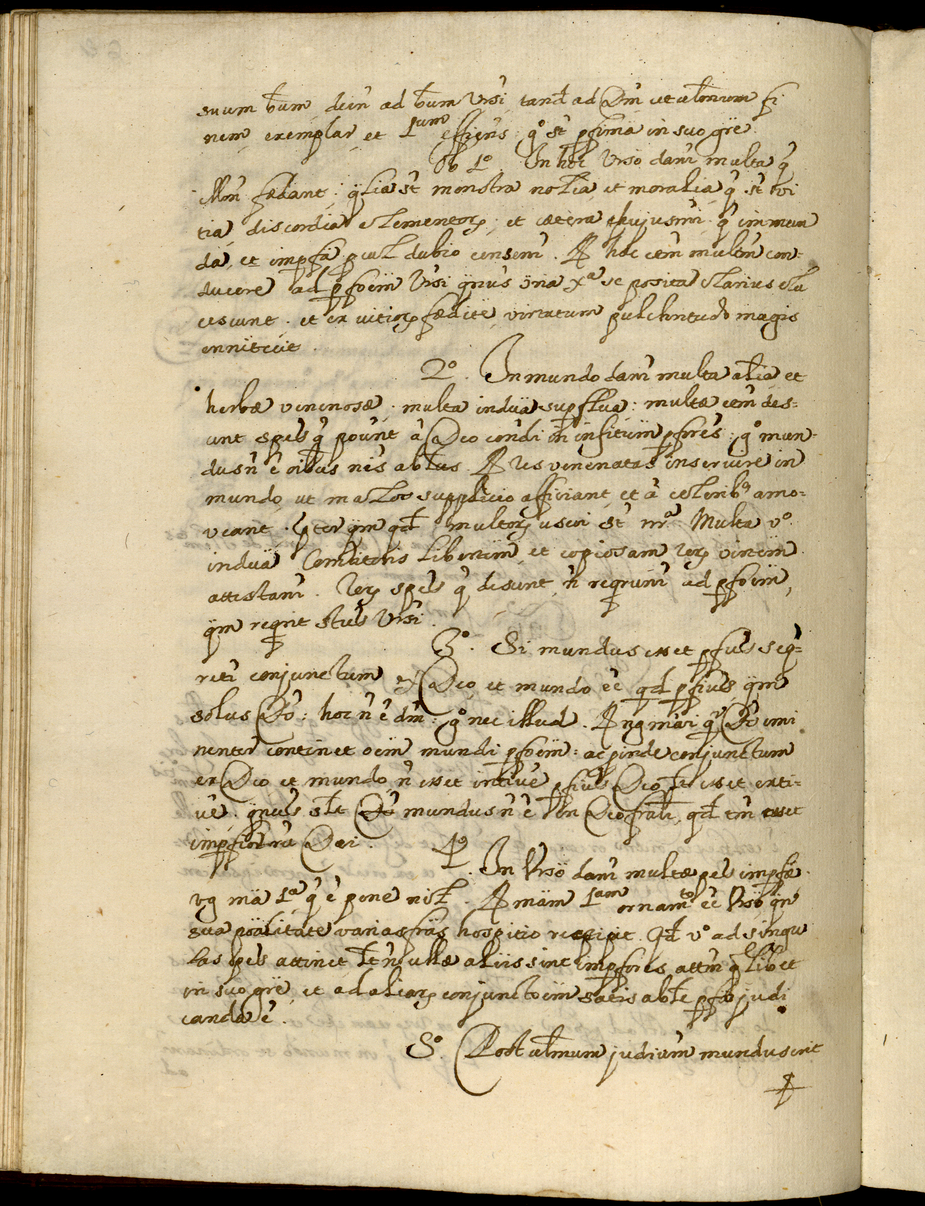 suum bum dein ad bum Ursi, tand ad Dm ut ultimum fi
nem, exemplar et 1um efficiens: go st pfima in suo gre
Ob 1o. In hoc Urso dant multa q
illm fædant; qlia st monstra notia et moralia q st
tia, discordia elementor, et cætera hujusmi q immun
da, et impfa pcul dubio censent. R hoc etm multm con-
ducere ad pfoem Ursi qnus ona xa se posita clarius elu
cescunt. et ex vitior fædite, virtutum pulchritudo magis
enitescit.
2o. In mundo dant multa alia et
herbæ venenosæ: multa indua supflua: multæ etm des-
unt spes q pount à Deo condi in infitum pfores: go mun-
dus n e oibus nis abtus. R res venenatas inservire in
mundo, ut malos supplicio afficiant, et à celerib9 amo-
veant. pter qm qd multor usui st nra. Multa vo
indua Conditoris libertem, et copiosam rer virtem
attestant. Rer spes q desunt, n reqrunt ad pfoem,
qm reqrit stus Ursi.
3o. Si mundus esset pfus seq-
ret conjunctum ex Deo et mundo ee qd pfius qm
solus Ds: hoc n e dm: go nec illud. R ng mai q Ds emi
nenter continet oem mundi pfoem: ac pinde conjunctum
ex Deo et mundo n esset intive pfius Deo, lt esset exti-
ve. qnus mundus n e in Deo frali, qd tm esset
impfim ru Dei.
4o. In Urso dant multæ pes impfæ.
vg ma 1a q e pene nil. R mam 1am ornamto ee Urso qn
sua poalitate varias fras hospitio recipit. Qd vo ad singu
las spes attinet lt n ullæ aliis sint impfores, attn qlibet
in suo gre, et ad aliar conjunctoem satis abte pfa judi
canda e.
5o. Post ultmum judicium mundus erit